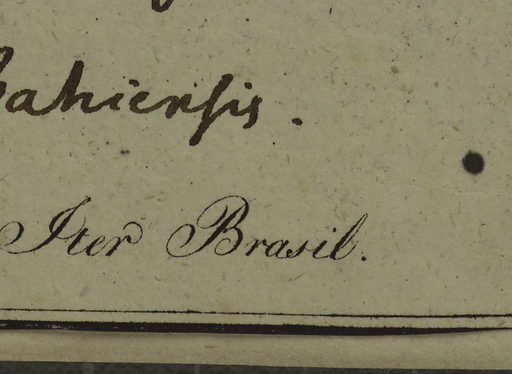 Bahiensis.
Iter Brasil.